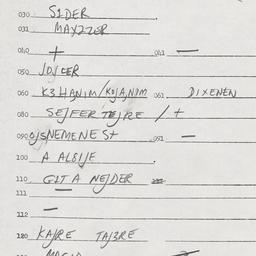 030 SIDER
031 MAYZZER
040 + 041 —
050 JOJCER
060 K3HANIM/KOJANIM 061 DIXENEN
080 SEJFER TEJRE / +
090 OJSNEMENESt 091 —
100 A ALBIJE
110 GIT A NEJDER
111 —
112 —
120 KAJRE TAJ3RE